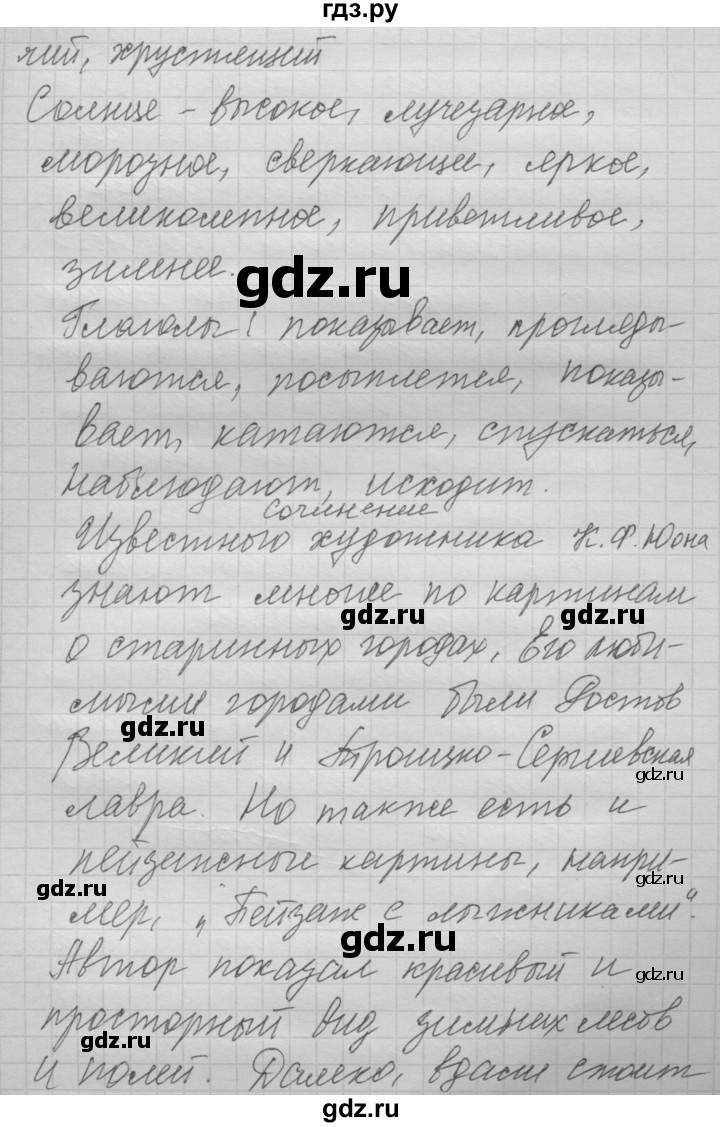 гдз.ру
лий, хрустящий
Солнце - высокое, лучезарное,
морозное, сверкающее, яркое,
великолепное, приветливое,
зимнее.
gdz.ru
Глаголы: показывает, прогляды-
ваются, посыплется, показы-
вает, катаются, спускаться,
наблюдают, исходит.
Сочинение
Известного художника К. Ф. Юона
знают многие по картинам
gdz.ru gdz.ru
о старинных городах, Его люби-
мыми городами были Ростов
gdz.ru
Великий и Троицко-Сергиевская
gdz.ru
лавра. Но также есть и
пейзажные картины, напри-
gdz.ru gdz.ru
мер, "Пейзаж с лыжниками".
gdz.ru
Автор показал красивый и
gdz.ru
просторный вид зимних лесов
gdz.ru
и полей. Далеко, вдали стоит
gdz.ru